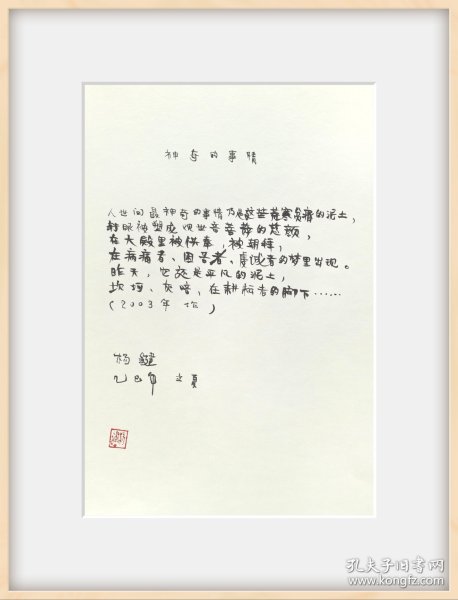 神奇的事情
人世间最神奇的事情乃是这些荒寒贫瘠的泥土,
被塑成观世音菩萨的慈颜,
在大殿里被供奉,被朝拜,
在病痛者、困苦者、虔诚者的梦里出现。
昨天,它还是平凡的泥土,
坎坷、灰暗,在耕耘者的脚下……
(2003年 )
杨键
乙巳年 之夏
孔夫子旧书网
www.kongfz.com